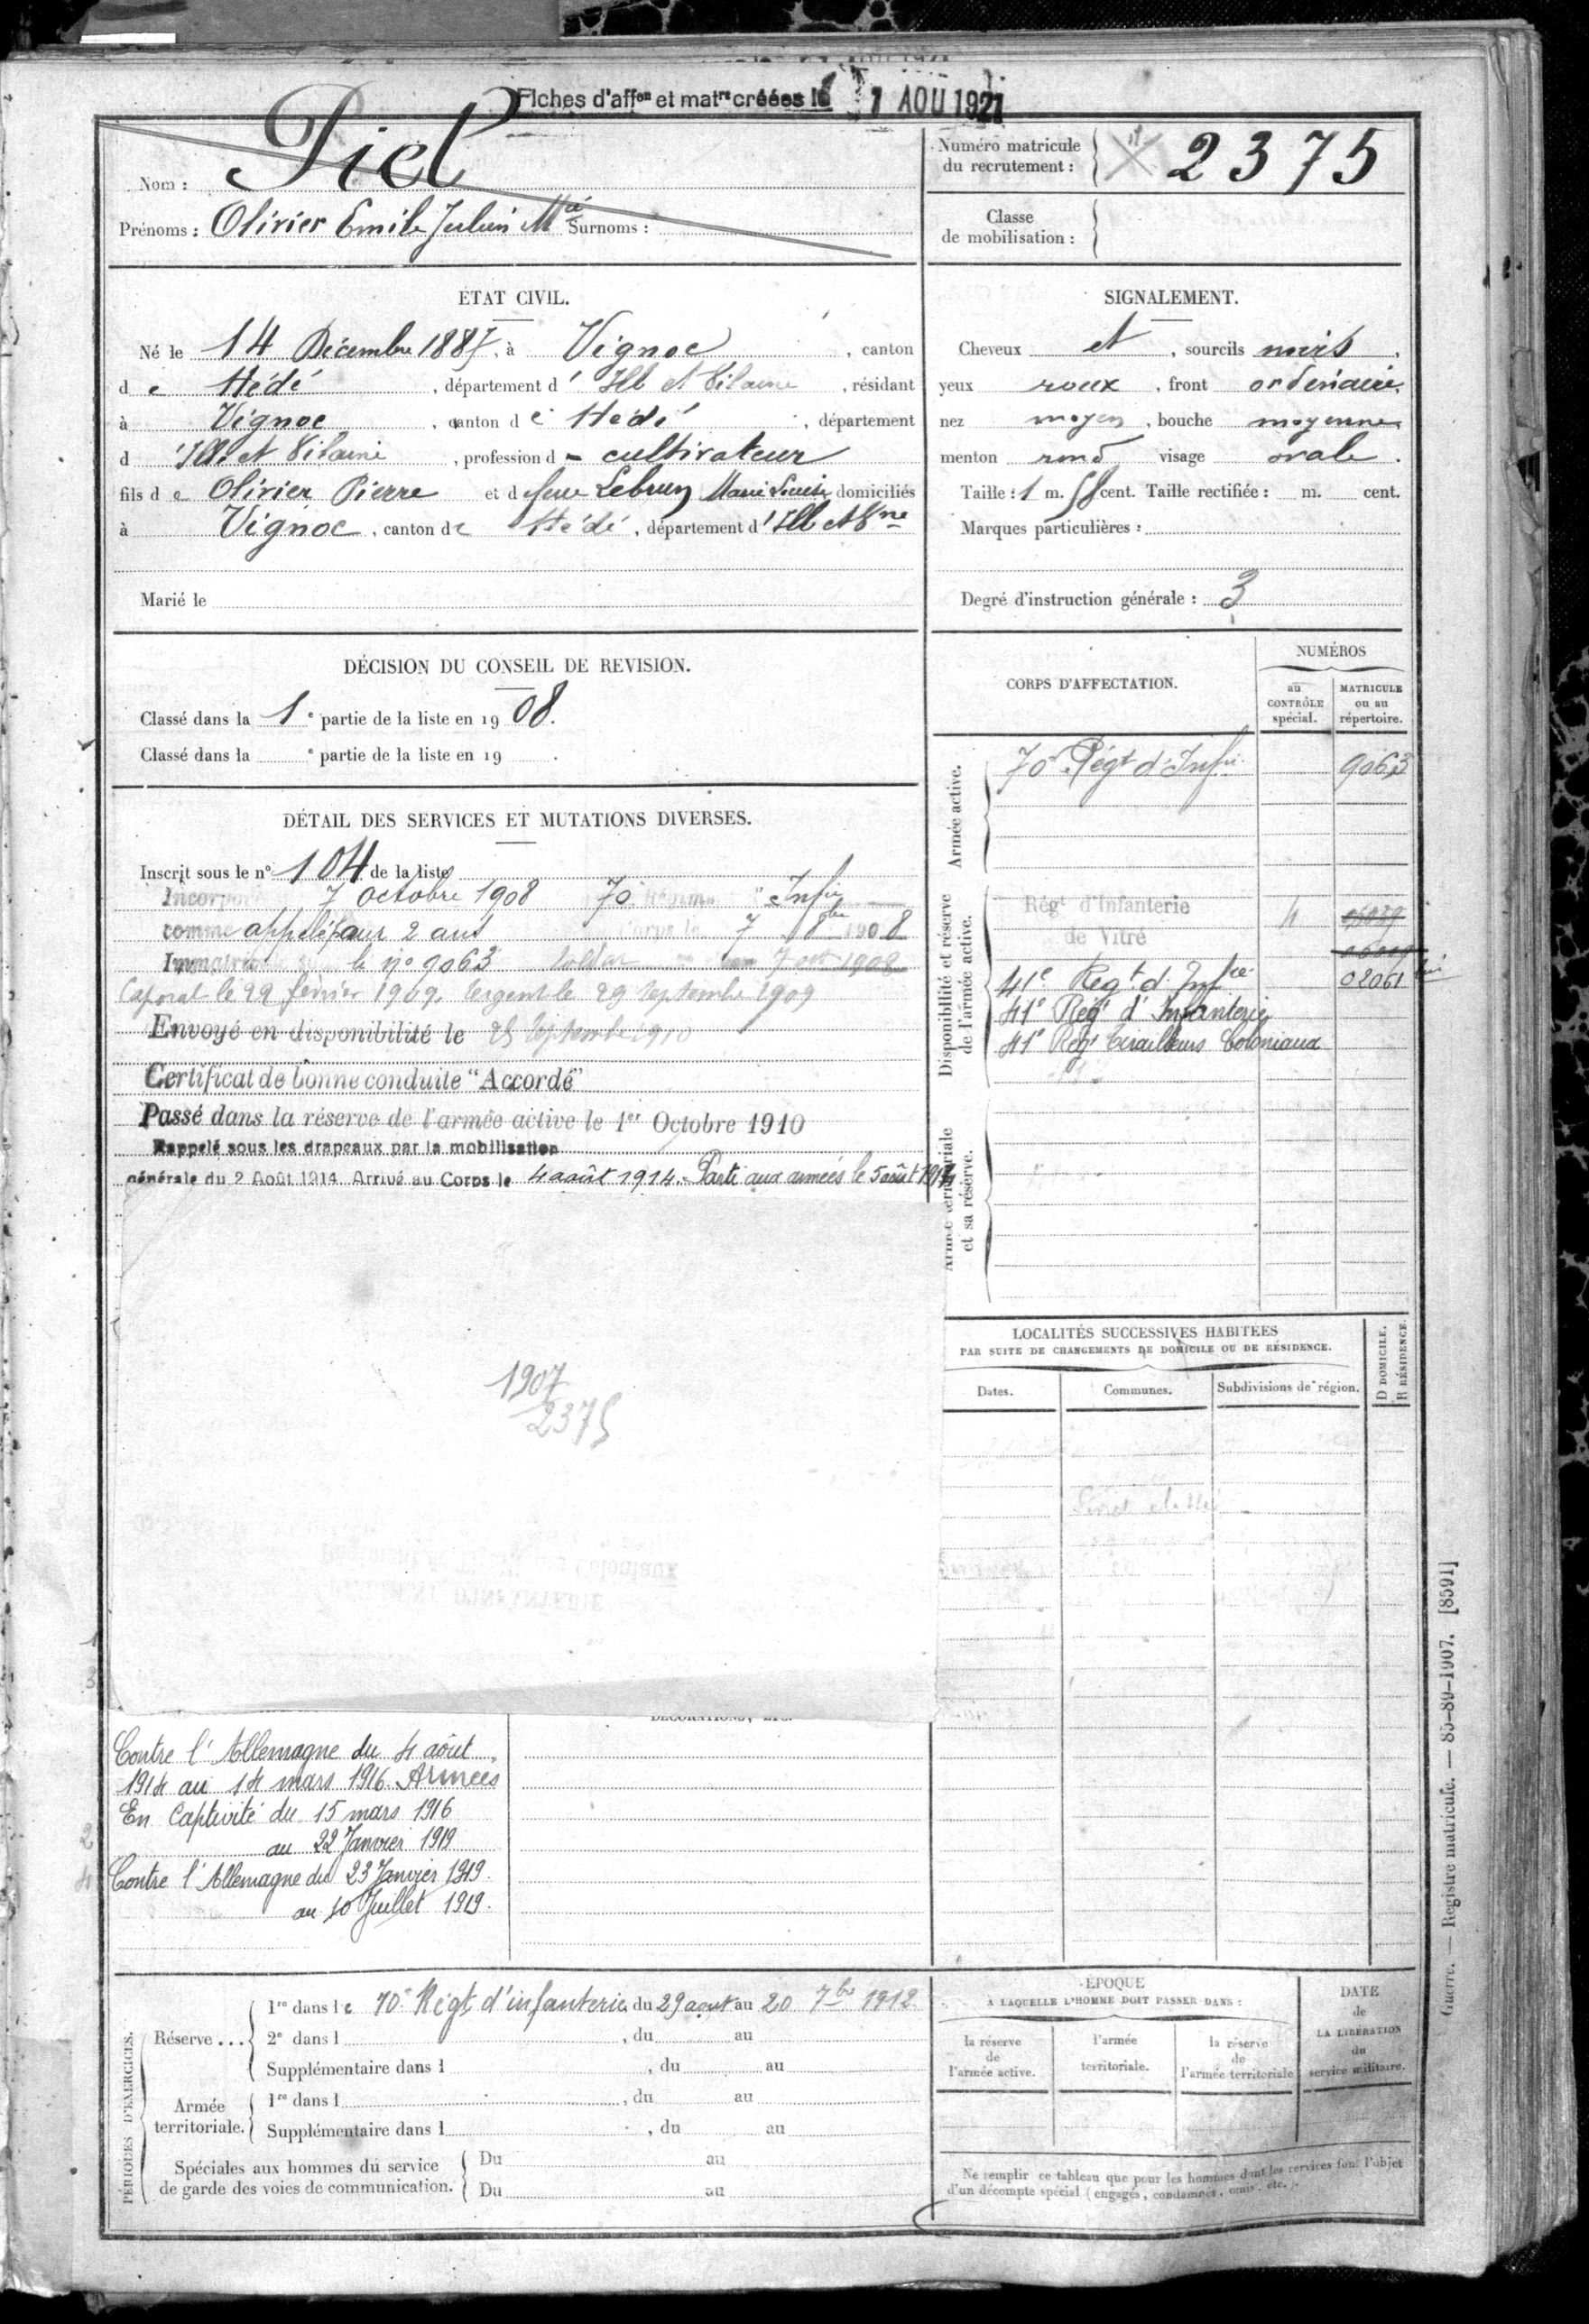 Fiches d'aff^on et mat^re créées le 1 AOU 1921
Nom : Piel
Prénoms : Olivier Emile Julien M^ie Surnoms :
Numéro matricule du recrutement : 2375
Classe de mobilisation :
ÉTAT CIVIL.
Né le 14 Décembre 1887, à Vignoc, canton
de Hédé, département d'Ille et Vilaine, résidant
à Vignoc, canton de Hédé, département
d'Ille et Vilaine, profession d - cultivateur
fils de Olivier Pierre et de feue Lebrun Marie Louise domiciliés
à Vignoc, canton de Hédé, département d'Ille et V^ne
Marié le
SIGNALEMENT.
Cheveux et, sourcils noirs,
yeux roux, front ordinaire,
nez moyen, bouche moyenne
menton rond visage ovale.
Taille : 1 m. 58 cent. Taille rectifiée : m. cent.
Marques particulières :
Degré d'instruction générale : 3
DÉCISION DU CONSEIL DE REVISION.
Classé dans la 1^e partie de la liste en 1908.
Classé dans la ^e partie de la liste en 19 .
DÉTAIL DES SERVICES ET MUTATIONS DIVERSES.
Inscrit sous le n° 104 de la liste
Incorporé 7 octobre 1908 70 Régim Inf^ie
comme appelé pour 2 ans Corps le 7 8bre 1908
Immatriculé le n° 9063 Soldat 7 oct 1908
Caporal le 22 février 1909, Sergent le 29 Septembre 1909
Envoyé en disponibilité le 25 Septembre 1910
Certificat de bonne conduite "Accordé"
Passé dans la réserve de l'armée active le 1er Octobre 1910
Rappelé sous les drapeaux par la mobilisation
générale du 2 Août 1914 Arrivé au Corps le 4 août 1914. Parti aux armées le 5 août 1914
1907
2375
CORPS D'AFFECTATION.
NUMÉROS
au CONTRÔLE spécial.
MATRICULE ou au répertoire.
Armée active.
70^e Rég^t d'Inf^ie 9063
Disponibilité et réserve de l'armée active.
Rég^t d'Infanterie 4
de Vitré
41^e Rég^t d'Inf^ie 02061
41^e Rég^t d'Infanterie
41^e Rég^t Tirailleurs Coloniaux
Armée territoriale et sa réserve.
LOCALITÉS SUCCESSIVES HABITÉES
PAR SUITE DE CHANGEMENTS DE DOMICILE OU DE RÉSIDENCE.
Dates.
Communes.
Subdivisions de région.
D DOMICILE.
R RÉSIDENCE.
DÉCORATIONS, ETC.
Contre l'Allemagne du 4 août
1914 au 14 mars 1916. Armées
En Captivité du 15 mars 1916
au 22 Janvier 1919
Contre l'Allemagne du 23 Janvier 1919.
au 10 Juillet 1919.
PÉRIODES D'EXERCICES.
Réserve ... 1re dans le 70^e Régt d'infanterie du 29 août au 20 7bre 1912
2e dans l , du au
Supplémentaire dans l , du au
Armée territoriale. 1re dans l , du au
Supplémentaire dans l , du au
Spéciales aux hommes du service de garde des voies de communication. Du au
Du au
ÉPOQUE
À LAQUELLE L'HOMME DOIT PASSER DANS :
la réserve de l'armée active.
l'armée territoriale.
la réserve de l'armée territoriale
DATE de LA LIBÉRATION du service militaire.
Ne remplir ce tableau que pour les hommes dont les services font l'objet
d'un décompte spécial (engagés, condamnés, omis, etc.).
Guerre. — Registre matricule. — 85-89-1907. [8591]